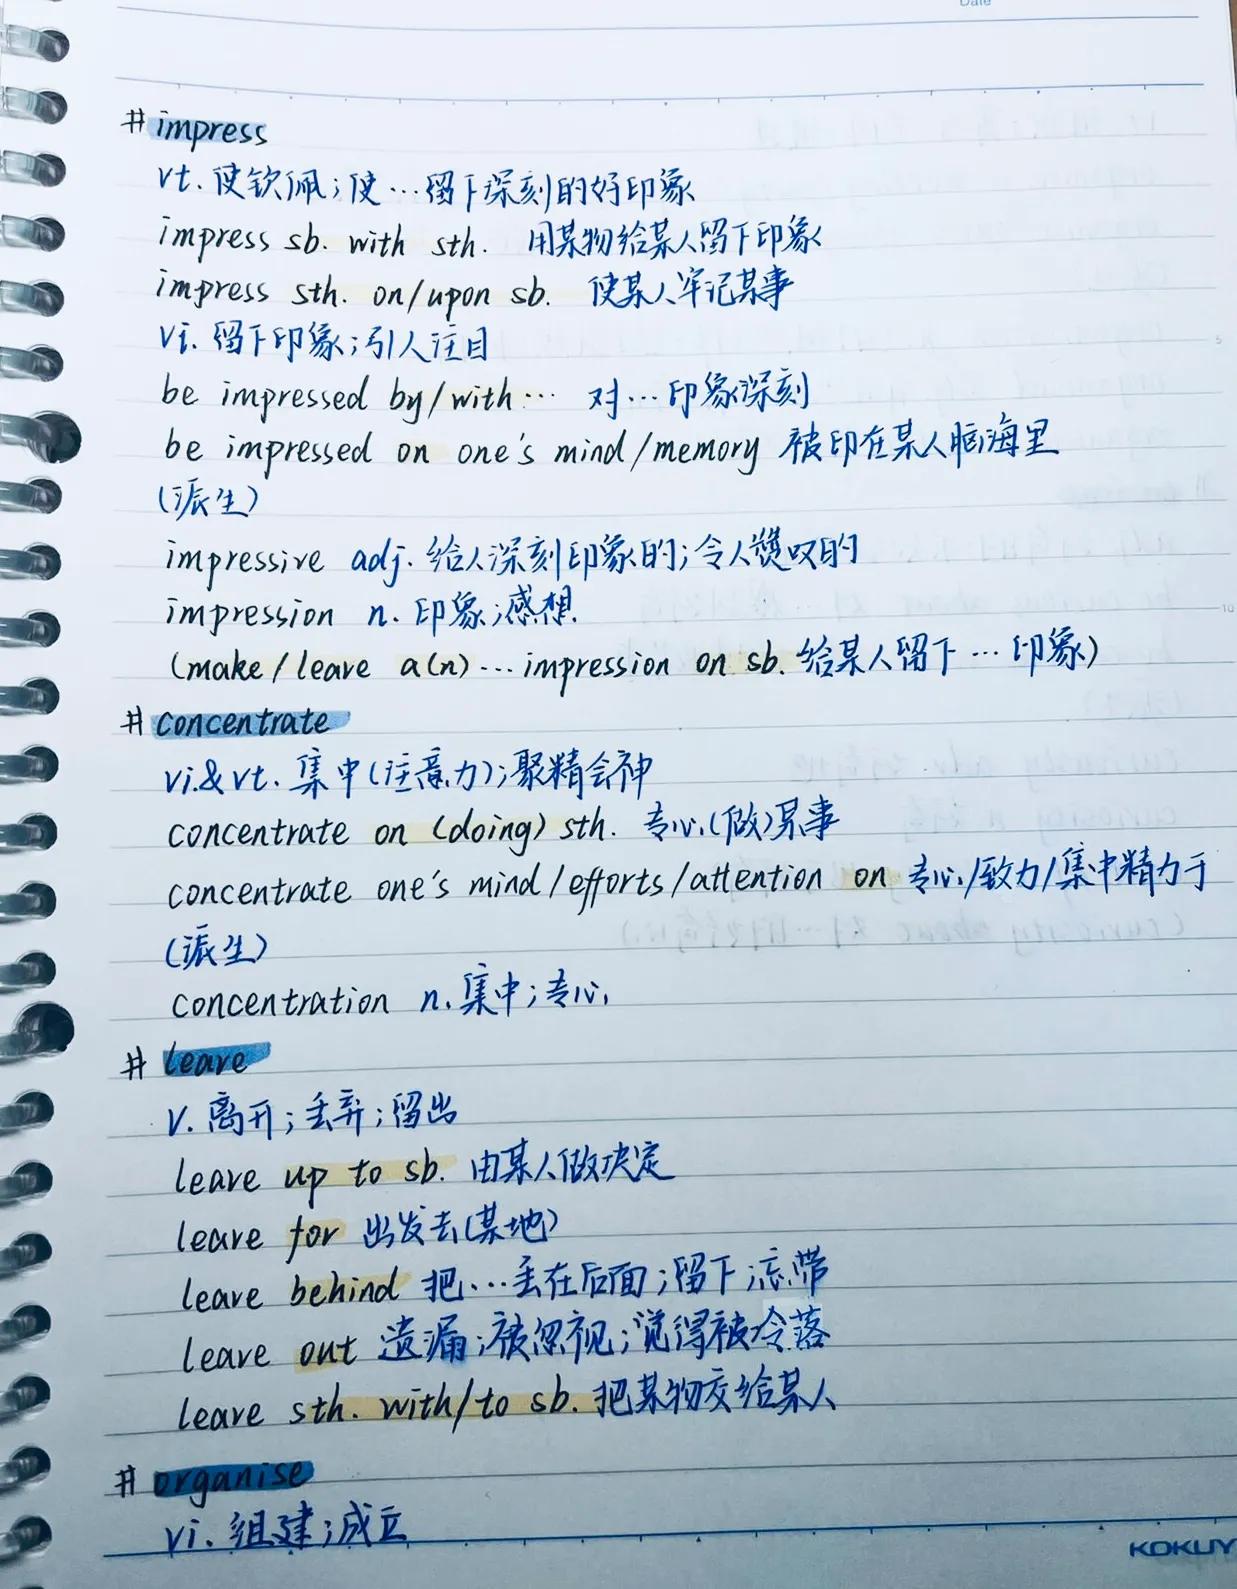 Date
# impress
vt. 使钦佩；使…留下深刻的好印象
impress sb. with sth. 用某物给某人留下印象
impress sth. on/upon sb. 使某人牢记某事
vi. 留下印象；引人注目
be impressed by/with… 对…印象深刻
be impressed on one's mind/memory 被印在某人脑海里
(派生)
impressive adj. 给人深刻印象的；令人赞叹的
impression n. 印象；感想.
(make/leave a(n)…impression on sb. 给某人留下…印象)
# concentrate
vi.&vt. 集中(注意力)；聚精会神
concentrate on (doing) sth. 专心(做)某事
concentrate one's mind/efforts/attention on 专心/致力/集中精力于
(派生)
concentration n. 集中；专心
# leave
v. 离开；丢弃；留出
leave up to sb. 由某人做决定
leave for 出发去(某地)
leave behind 把…丢在后面；留下；忘带
leave out 遗漏；被忽视；觉得被冷落
leave sth. with/to sb. 把某物交给某人
# organise
vi. 组建；成立
KOKUY